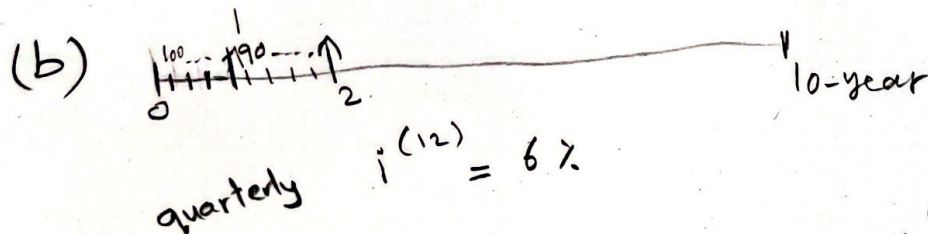 (b) 100 ... 1 90 ---
0 2 10-year
quarterly i^(12) = 6 %